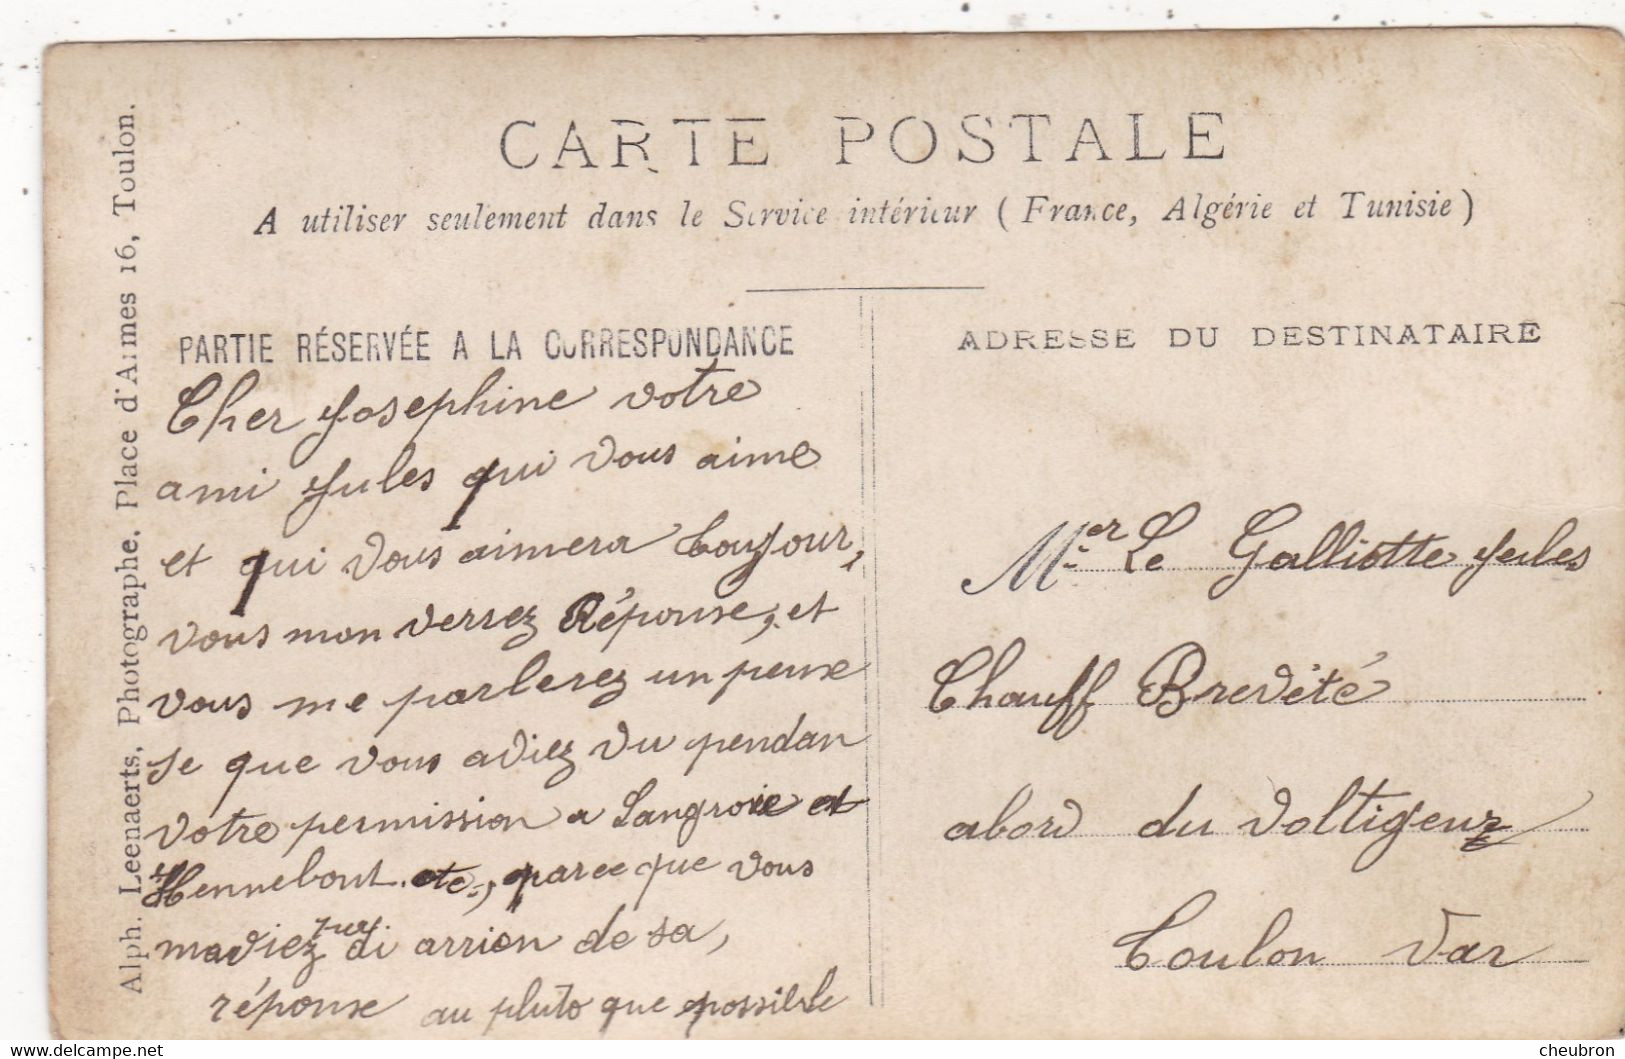 CARTE POSTALE
A utiliser seulement dans le Service intérieur (France, Algérie et Tunisie)
Alph. Leenaerts, Photographe, Place d'Armes 16, Toulon.
PARTIE RÉSERVÉE A LA CORRESPONDANCE
Cher Josephine votre
ami Jules qui vous aime
et qui vous aimera toujour,
vous mon verrez Réponse, et
vous me parlerez un peux
se que vous aviez vu pendan
votre permission a Langroie et
Hennebont etc, parce que vous
maviez pu di arrien de sa,
réponse au pluto que possible
ADRESSE DU DESTINATAIRE
Mer Le Galliotte Jules
Chauff Brevété
abord du Voltigeur
Toulon Var
delcampe.net
cheubron